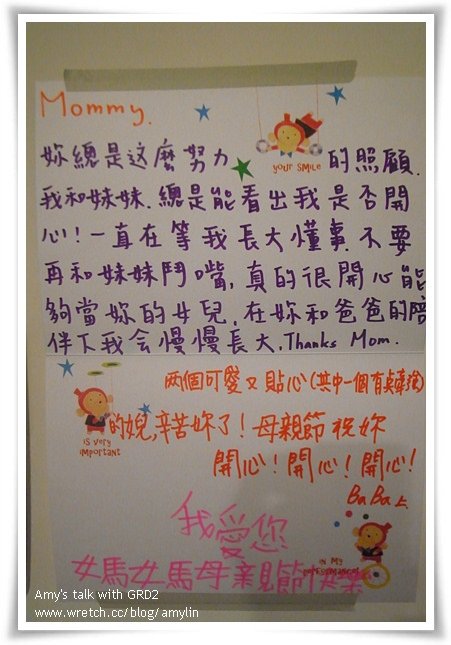 Mommy.
妳總是这麼努力
YOUR SMILE
的照顧.
我和妹妹.總是能看出我是否開
心!一直在等我長大懂事.不要
再和妹妹鬥嘴,真的很開心能
夠當妳的女兒.在妳和爸爸的陪
伴下我会慢慢長大.Thanks Mom.
两個可愛又貼心(其中一個有点牽強)
IS VERY
IMPORTANT
的婗,辛苦妳了!母親節祝妳
開心!開心!開心!
BaBa上
我愛您
媽媽母親節快樂
IN MY
PERFORMANCE!
Amy's talk with GRD2
www.wretch.cc/blog/amylin